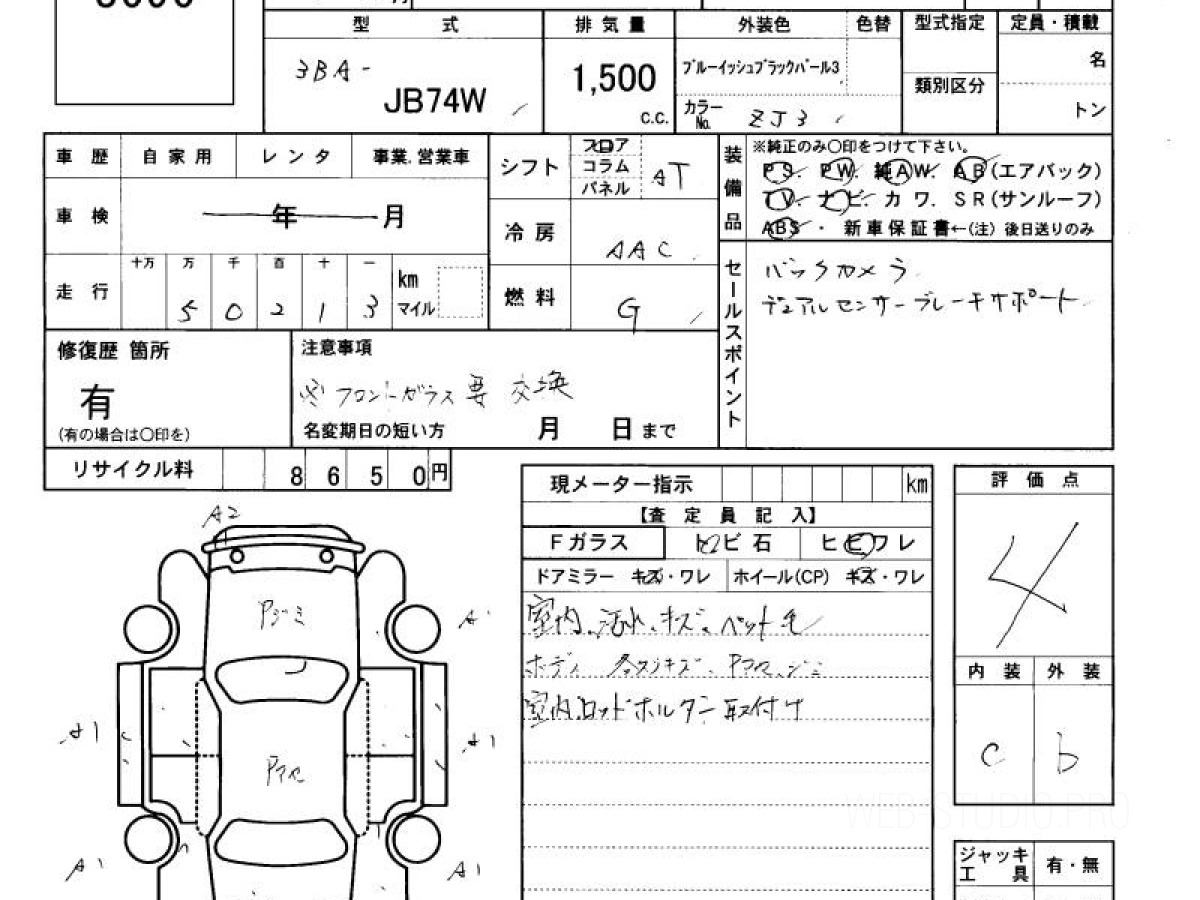 型 式 排 気 量 外装色 色替 型式指定 定員・積載
3BA-
JB74W
1,500
c.c.
ブルーイッシュブラックパール3
カラーNo. ZJ3
類別区分
名
トン
車 歴 自 家 用 レ ン タ 事業.営業車
車 検 年 月
走 行 十万 万 千 百 十 一
5 0 2 1 3
km
マイル
シフト フロア コラム パネル AT
冷 房 AAC
燃 料 G
装備品
※純正のみ○印をつけて下さい。
PS. PW. 純AW. AB(エアバック)
TV. ナビ. カワ. SR(サンルーフ)
ABS ・ 新車保証書←(注) 後日送りのみ
セールスポイント
バックカメラ
デュアルセンサーブレーキサポート
修復歴 箇所
有
(有の場合は○印を)
注意事項
※フロントガラス要交換
名変期日の短い方 月 日 まで
リサイクル料 8 6 5 0 円
現メーター指示 km
【査 定 員 記 入】
Fガラス トビ石 ヒビワレ
ドアミラー キズ・ワレ ホイール(CP) キズ・ワレ
室内、汚れ、キズ、ペット毛
室内ロッドホルダー取付け
評 価 点
4
内 装 外 装
c b
ジャッキ
工 具
有・無
A2
A1
A1
A1
A1
WEB-STUDIO.PRO